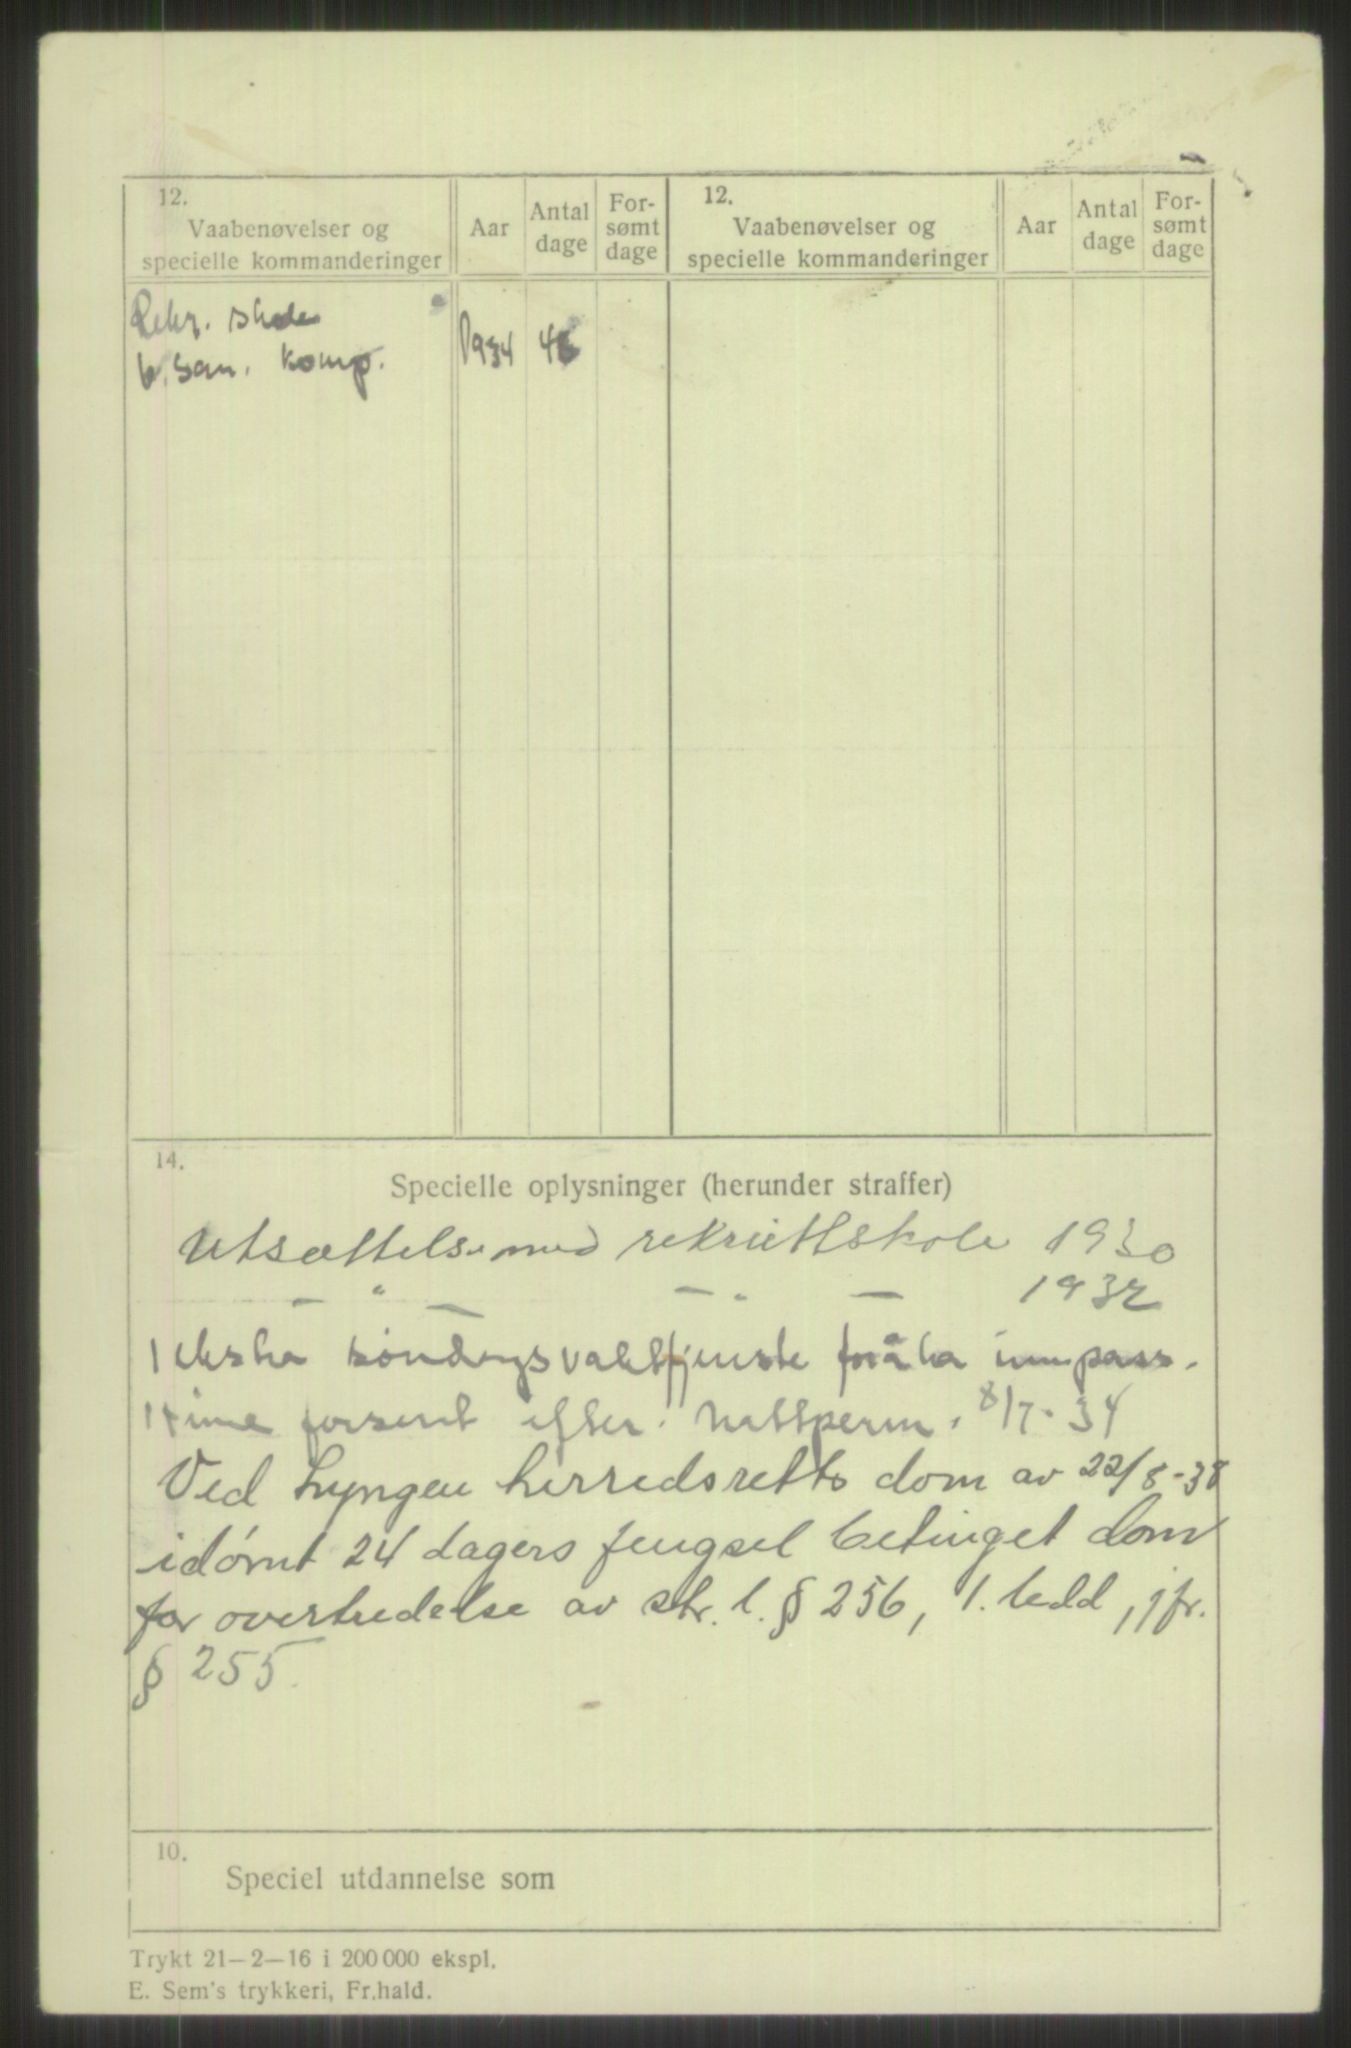 12.
Vaabenøvelser og
specielle kommanderinger
Aar
Antal
dage
For-
sømt
dage
12.
Vaabenøvelser og
specielle kommanderinger
Aar
Antal
dage
For-
sømt
dage
Rekr. skole
v. San. komp.
1934
14.
Specielle oplysninger (herunder straffer)
Utsættelse med rekruttskole 1930
— " — — " — 1932
1 ekstra søndagsvakttjeneste for å ha
1 time forsent efter nattperm. 8/7-34
Ved Lyngen herredsretts dom av 22/8-38
idømt 24 dagers fengsel betinget dom
for overtredelse av str. l. § 256, 1. ledd, jfr.
§ 255.
10.
Speciel utdannelse som
Trykt 21—2—16 i 200 000 ekspl.
E. Sem's trykkeri, Fr.hald.